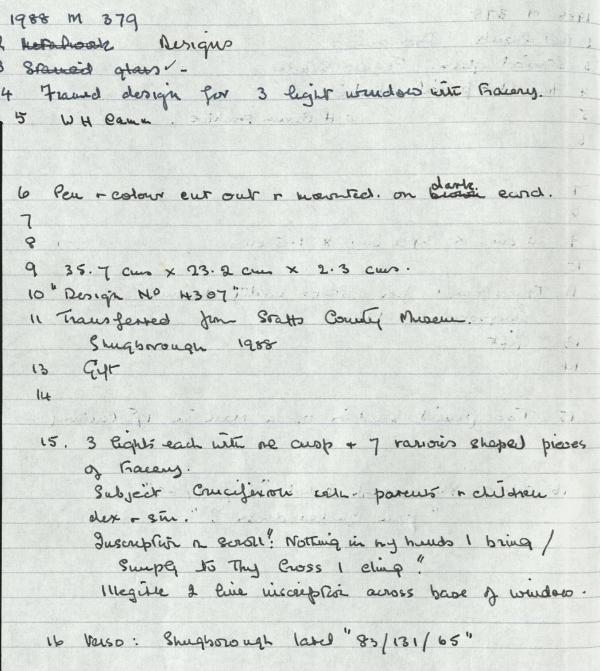 1988 M 379
2 Notebook Designs
3 Stained glass ✓ -
4 Framed design for 3 light window with Tracery.
5 W H Camm.
6 Pen + colour cut out + mounted. on brown dark card.
7
8
9 35.7 cms x 23.2 cms x 2.3 cms.
10 "Design No H307"
11 Transferred from Staffs County Museum.
Shugborough 1988
13 Gift
14
15. 3 lights each with one cusp + 7 various shaped pieces
of Tracery.
Subject Crucifixion with parents + children
dex + sin.
Inscription on scroll "Nothing in my hands I bring /
Simply to Thy Cross I cling"
Illegible 2 line inscription across base of window.
16 Verso: Shugborough label "83/131/65"